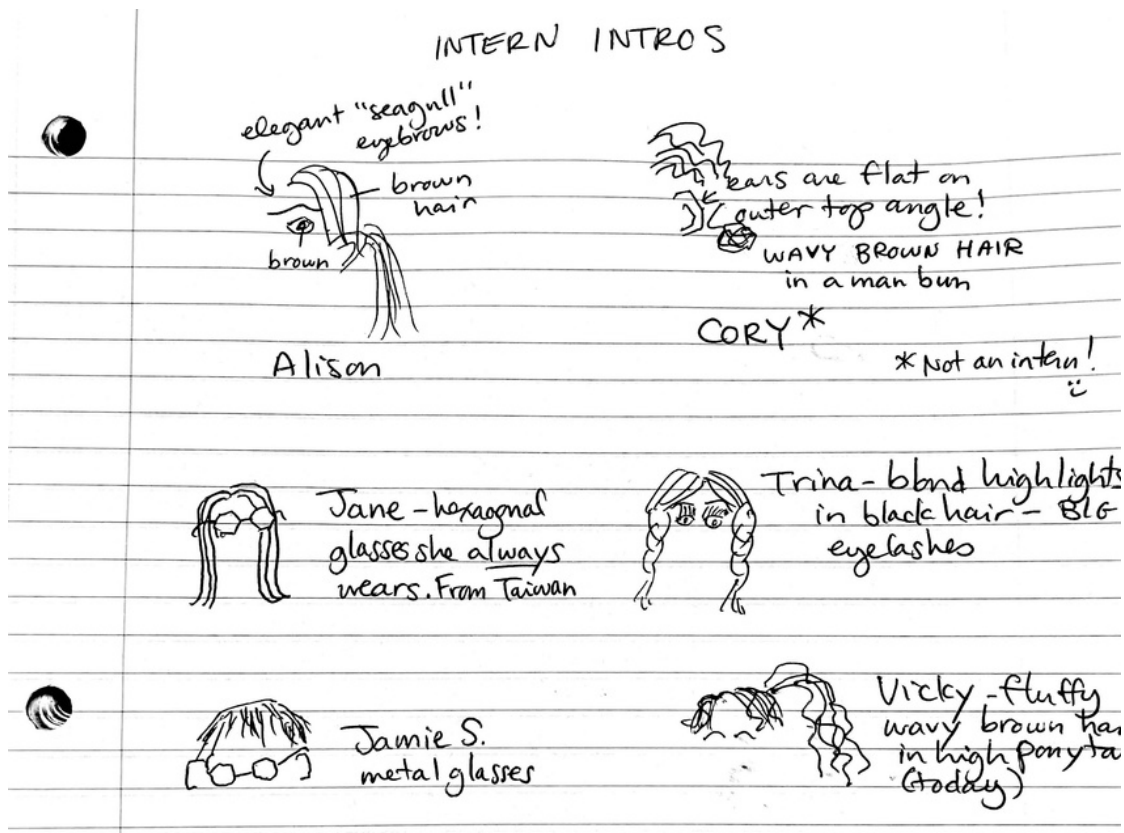 INTERN INTROS
elegant "seagull"
eyebrows!
brown
hair
brown
Alison
ears are flat on
outer top angle!
WAVY BROWN HAIR
in a man bun
CORY*
* Not an intern!
Jane - hexagonal
glasses she always
wears. From Taiwan
Trina - blond highlights
in black hair - BIG
eyelashes
Jamie S.
metal glasses
Vicky - fluffy
wavy brown hai
in high ponyta
(today)